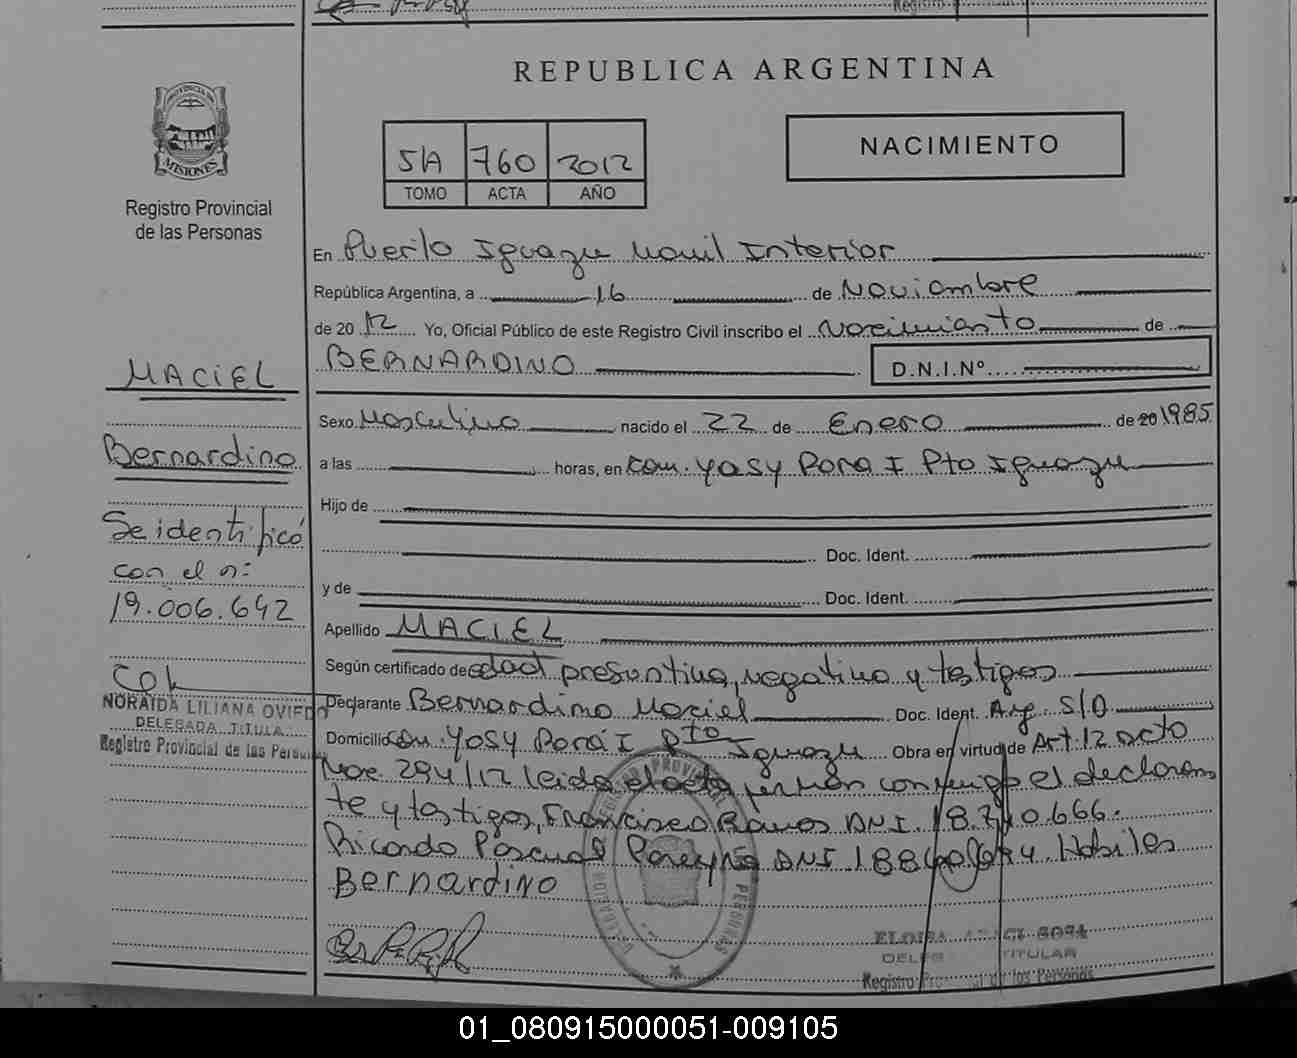 REPUBLICA ARGENTINA
NACIMIENTO
5A 760 2012
TOMO ACTA AÑO
PROVINCIA DE
MISIONES
Registro Provincial
de las Personas
En Puerto Iguazu Movil Interior
República Argentina, a 16 de Noviembre
de 2012 Yo, Oficial Público de este Registro Civil inscribo el Nacimiento de
BERNARDINO D.N.I.Nº
MACIEL
Bernardino
Se identificó
con el n:
19.006.642
NORAIDA LILIANA OVIEDO
DELEGADA TITULAR
Registro Provincial de las Personas
Sexo Masculino nacido el 22 de Enero de 20 1985
a las horas, en com. Yasy Pora I Pto Iguazu
Hijo de
Doc. Ident.
y de
Doc. Ident.
Apellido MACIEL
Según certificado de edad presuntiva, negativa y testigos
Declarante Bernardino Maciel Doc. Ident. Arg. S/D
Domicilio com Yasy Porá I Pto Iguazu Obra en virtud de Art. 12 acto
294/12 leida el acta conmigo el declaran
te y testigos, Francisco Ramos DNI. 18.710.666.
Ricardo Pascual DNI Habiles
Bernardino
TITULAR
Registro de las Personas
01_080915000051-009105